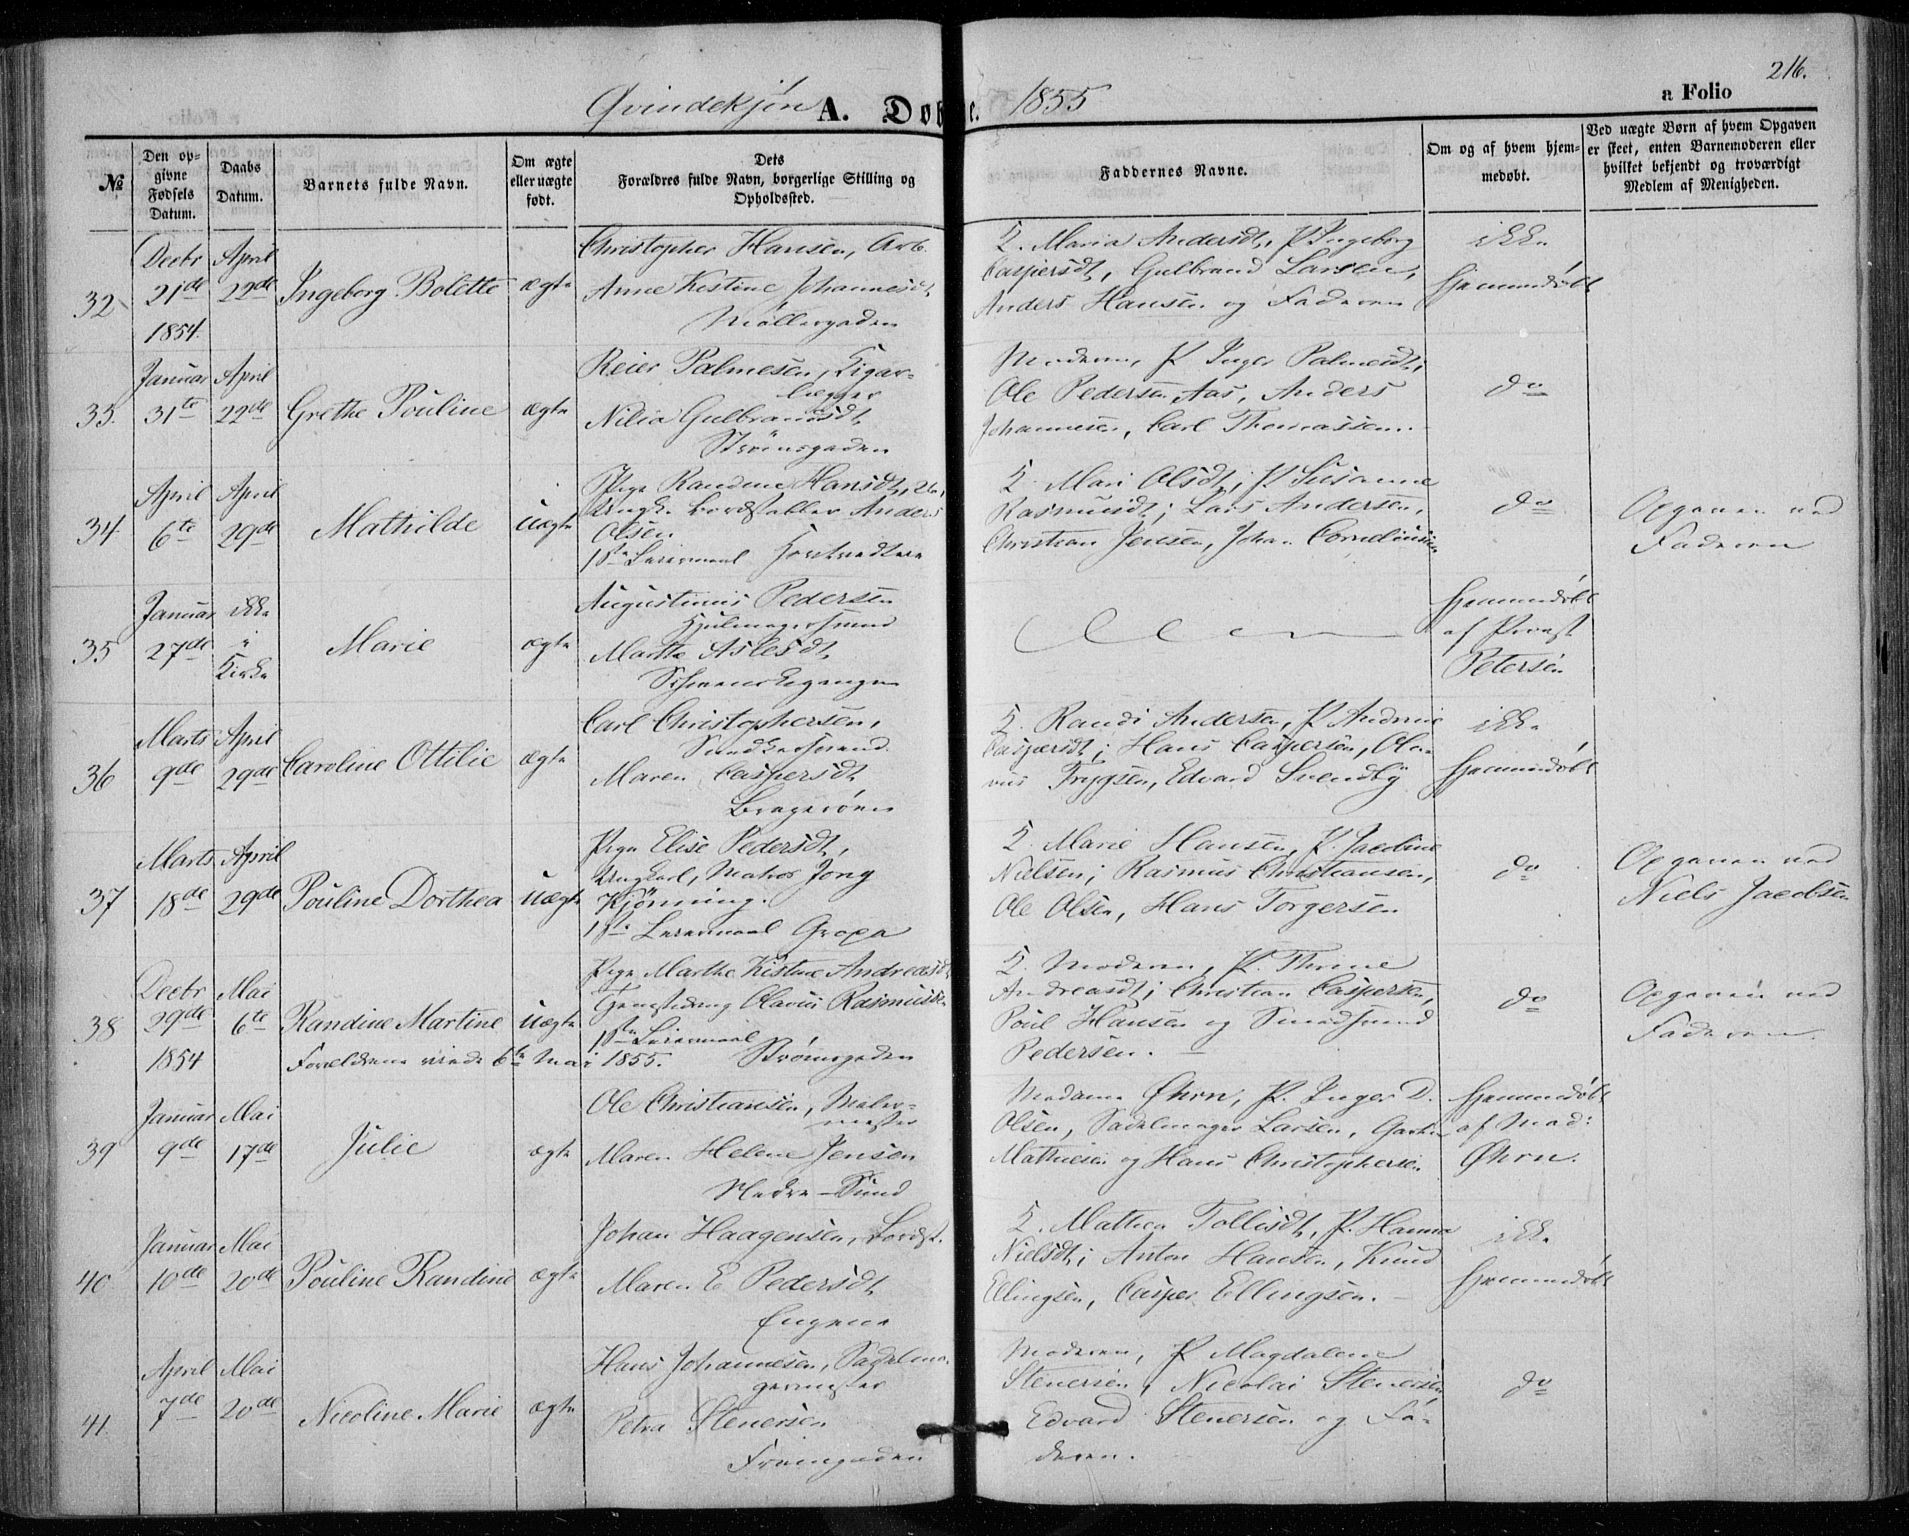 216.
Qvindekjøn A. Døbte. 1855 a Folio
№
Den opgivne Fødsels Datum.
Daabs Datum.
Barnets fulde Navn.
Om ægte eller uægte født.
Dets Forældres fulde Navn, borgerlige Stilling og Opholdssted.
Faddernes Navne.
Om og af hvem hjemmedøbt.
Ved uægte Børn af hvem Opgaven er skeet, enten Barnemoderen eller hvilket bekjendt og troværdigt Medlem af Menigheden.
32
Decbr 21de 1854.
April 22de
Ingeborg Bolette
ægte
Christopher Hansen, Arb.
Anne Kistine Johannesdt
Møllergaden
K. Maria Andersdt, P Ingeborg
Caspersdt, Gulbrand Larsen,
Anders Hansen og Faderen
ikke
hjemmedøbt
33.
Januar 31te
April 22de
Grethe Pouline
ægte
Reier Palmesen, Sigar-
Nilia Gulbrandsdt
Strömsgaden
Moderen, P Inger Palmesdt,
Ole Pedersen Aas, Anders
Johannesen, Carl Thomassen.
do
34.
April 6te
April 29de
Mathilde
uægte
Pige Randine Hansdt, 26,
Ungk. Bordstabler Anders
Olsen
1ste Leiermaal
K. Mari Olsdt, P Susanne
Rasmusdt; Lars Andersen,
Christian Jensen, Johan Corneliussen
do
Opgaven ved
Faderen
35
Januar 27de
ikke i Kirke
Marie
ægte
Augustinus Pedersen
Hjulmagersvend
Marthe Aslesdt
hjemmedøbt
af Provst
Petersen
36
Marts 9de
April 29de
Caroline Ottilie
ægte
Carl Christophersen,
Snedkersvend.
Maren Caspersdt
Bragerøen
K. Randi Andersen, P Andrine
Caspersdt; Hans Caspersen, Ola-
vus Trygsen, Edvard Svendby
ikke
hjemmedøbt
37
Marts 18de
April 29de
Pouline Dorthea
uægte
Pige Elise Pedersdt,
Ungkarl, Matros Jong
Kjönning.
1ste Leiermaal
K. Marie Hansen, P. Jacobine
Nielsen; Rasmus Christiansen,
Ole Olsen, Hans Torgersen
do
Opgaven ved
Niels Jacobsen
38
Decbr 29de 1854
Mai 6te
Randine Martine
uægte
Pige Marthe Kistine Andreasdt
Olavus Rasmussen
1ste Leiermaal
Strömsgaden
Forældrene viede 6te Mai 1855.
K. Moderen, P. Thrine
Andreasdt; Christian Caspersen,
Poul Hansen og Smedsvend
Pedersen.
do
Opgaven ved
Faderen
39
Januar 9de
Mai 17de
Julie
ægte
Ole Christiansen, Maler-
mester
Maren Helene Jensen
Nedre-Sund
Madame Öhrn, P. Inger D.
Olsen, Sadelmager Larsen,
Mathiesen og Hans Christophersen
hjemmedøbt
af Mad:
Öhrn.
40
Januar 10de
Mai 20de
Pouline Randine
ægte
Johan Haagensen, Bordst.
Maren E Pedersdt
Engene
K. Mathea Tollisdt, P. Hanna
Nielsdt; Anton Hansen, Knud
Ellingsen, Casper Ellingsen.
ikke
hjemmedøbt
41
April 7de
Mai 20de
Nicoline Marie
ægte
Hans Johannesen, Sadelma-
germester
Petra Stenersen
Moderen, P Magdalene
Stenersen, Nicolai Stenersen
Edvard Stenersen og Fa-
deren.
do